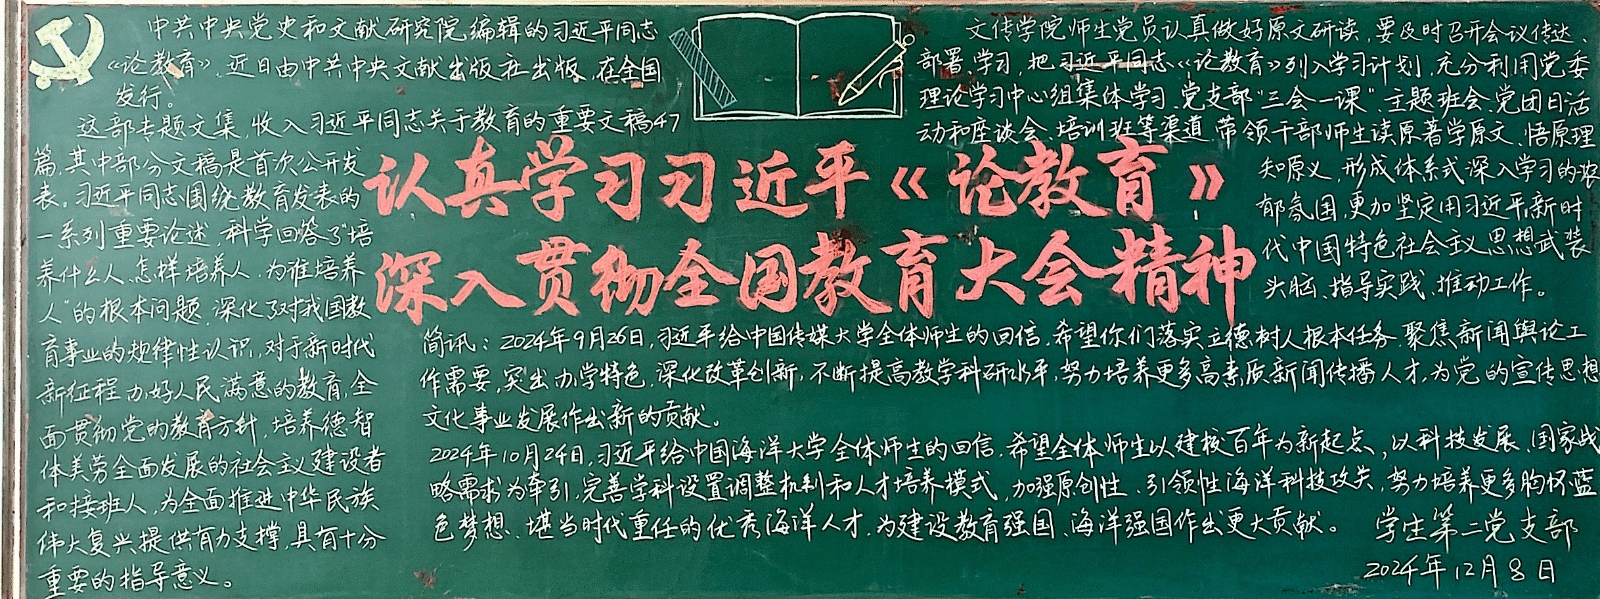 中共中央党史和文献研究院编辑的习近平同志
《论教育》,近日由中共中央文献出版社出版,在全国
发行。
这部专题文集,收入习近平同志关于教育的重要文稿47
篇,其中部分文稿是首次公开发
表。习近平同志围绕教育发表的
一系列重要论述,科学回答了“培
养什么人、怎样培养人、为谁培养
人”的根本问题,深化了对我国教
育事业的规律性认识,对于新时代
新征程办好人民满意的教育,全
面贯彻党的教育方针,培养德智
体美劳全面发展的社会主义建设者
和接班人,为全面推进中华民族
伟大复兴提供有力支撑,具有十分
重要的指导意义。
认真学习习近平《论教育》
深入贯彻全国教育大会精神
文传学院师生党员认真做好原文研读,要及时召开会议传达、
部署学习,把习近平同志《论教育》列入学习计划,充分利用党委
理论学习中心组集体学习、党支部“三会一课”、主题班会、党团日活
动和座谈会、培训班等渠道,带领干部师生读原著学原文、悟原理
知原义,形成体系式深入学习的浓
郁氛围,更加坚定用习近平新时
代中国特色社会主义思想武装
头脑、指导实践、推动工作。
简讯:2024年9月26日,习近平给中国传媒大学全体师生的回信,希望你们落实立德树人根本任务,聚焦新闻舆论工
作需要,突出办学特色,深化改革创新,不断提高教学科研水平,努力培养更多高素质新闻传播人才,为党的宣传思想
文化事业发展作出新的贡献。
2024年10月24日,习近平给中国海洋大学全体师生的回信,希望全体师生以建校百年为新起点,以科技发展、国家战
略需求为牵引,完善学科设置调整机制和人才培养模式,加强原创性、引领性海洋科技攻关,努力培养更多胸怀蓝
色梦想、堪当时代重任的优秀海洋人才,为建设教育强国、海洋强国作出更大贡献。
学生第二党支部
2024年12月8日